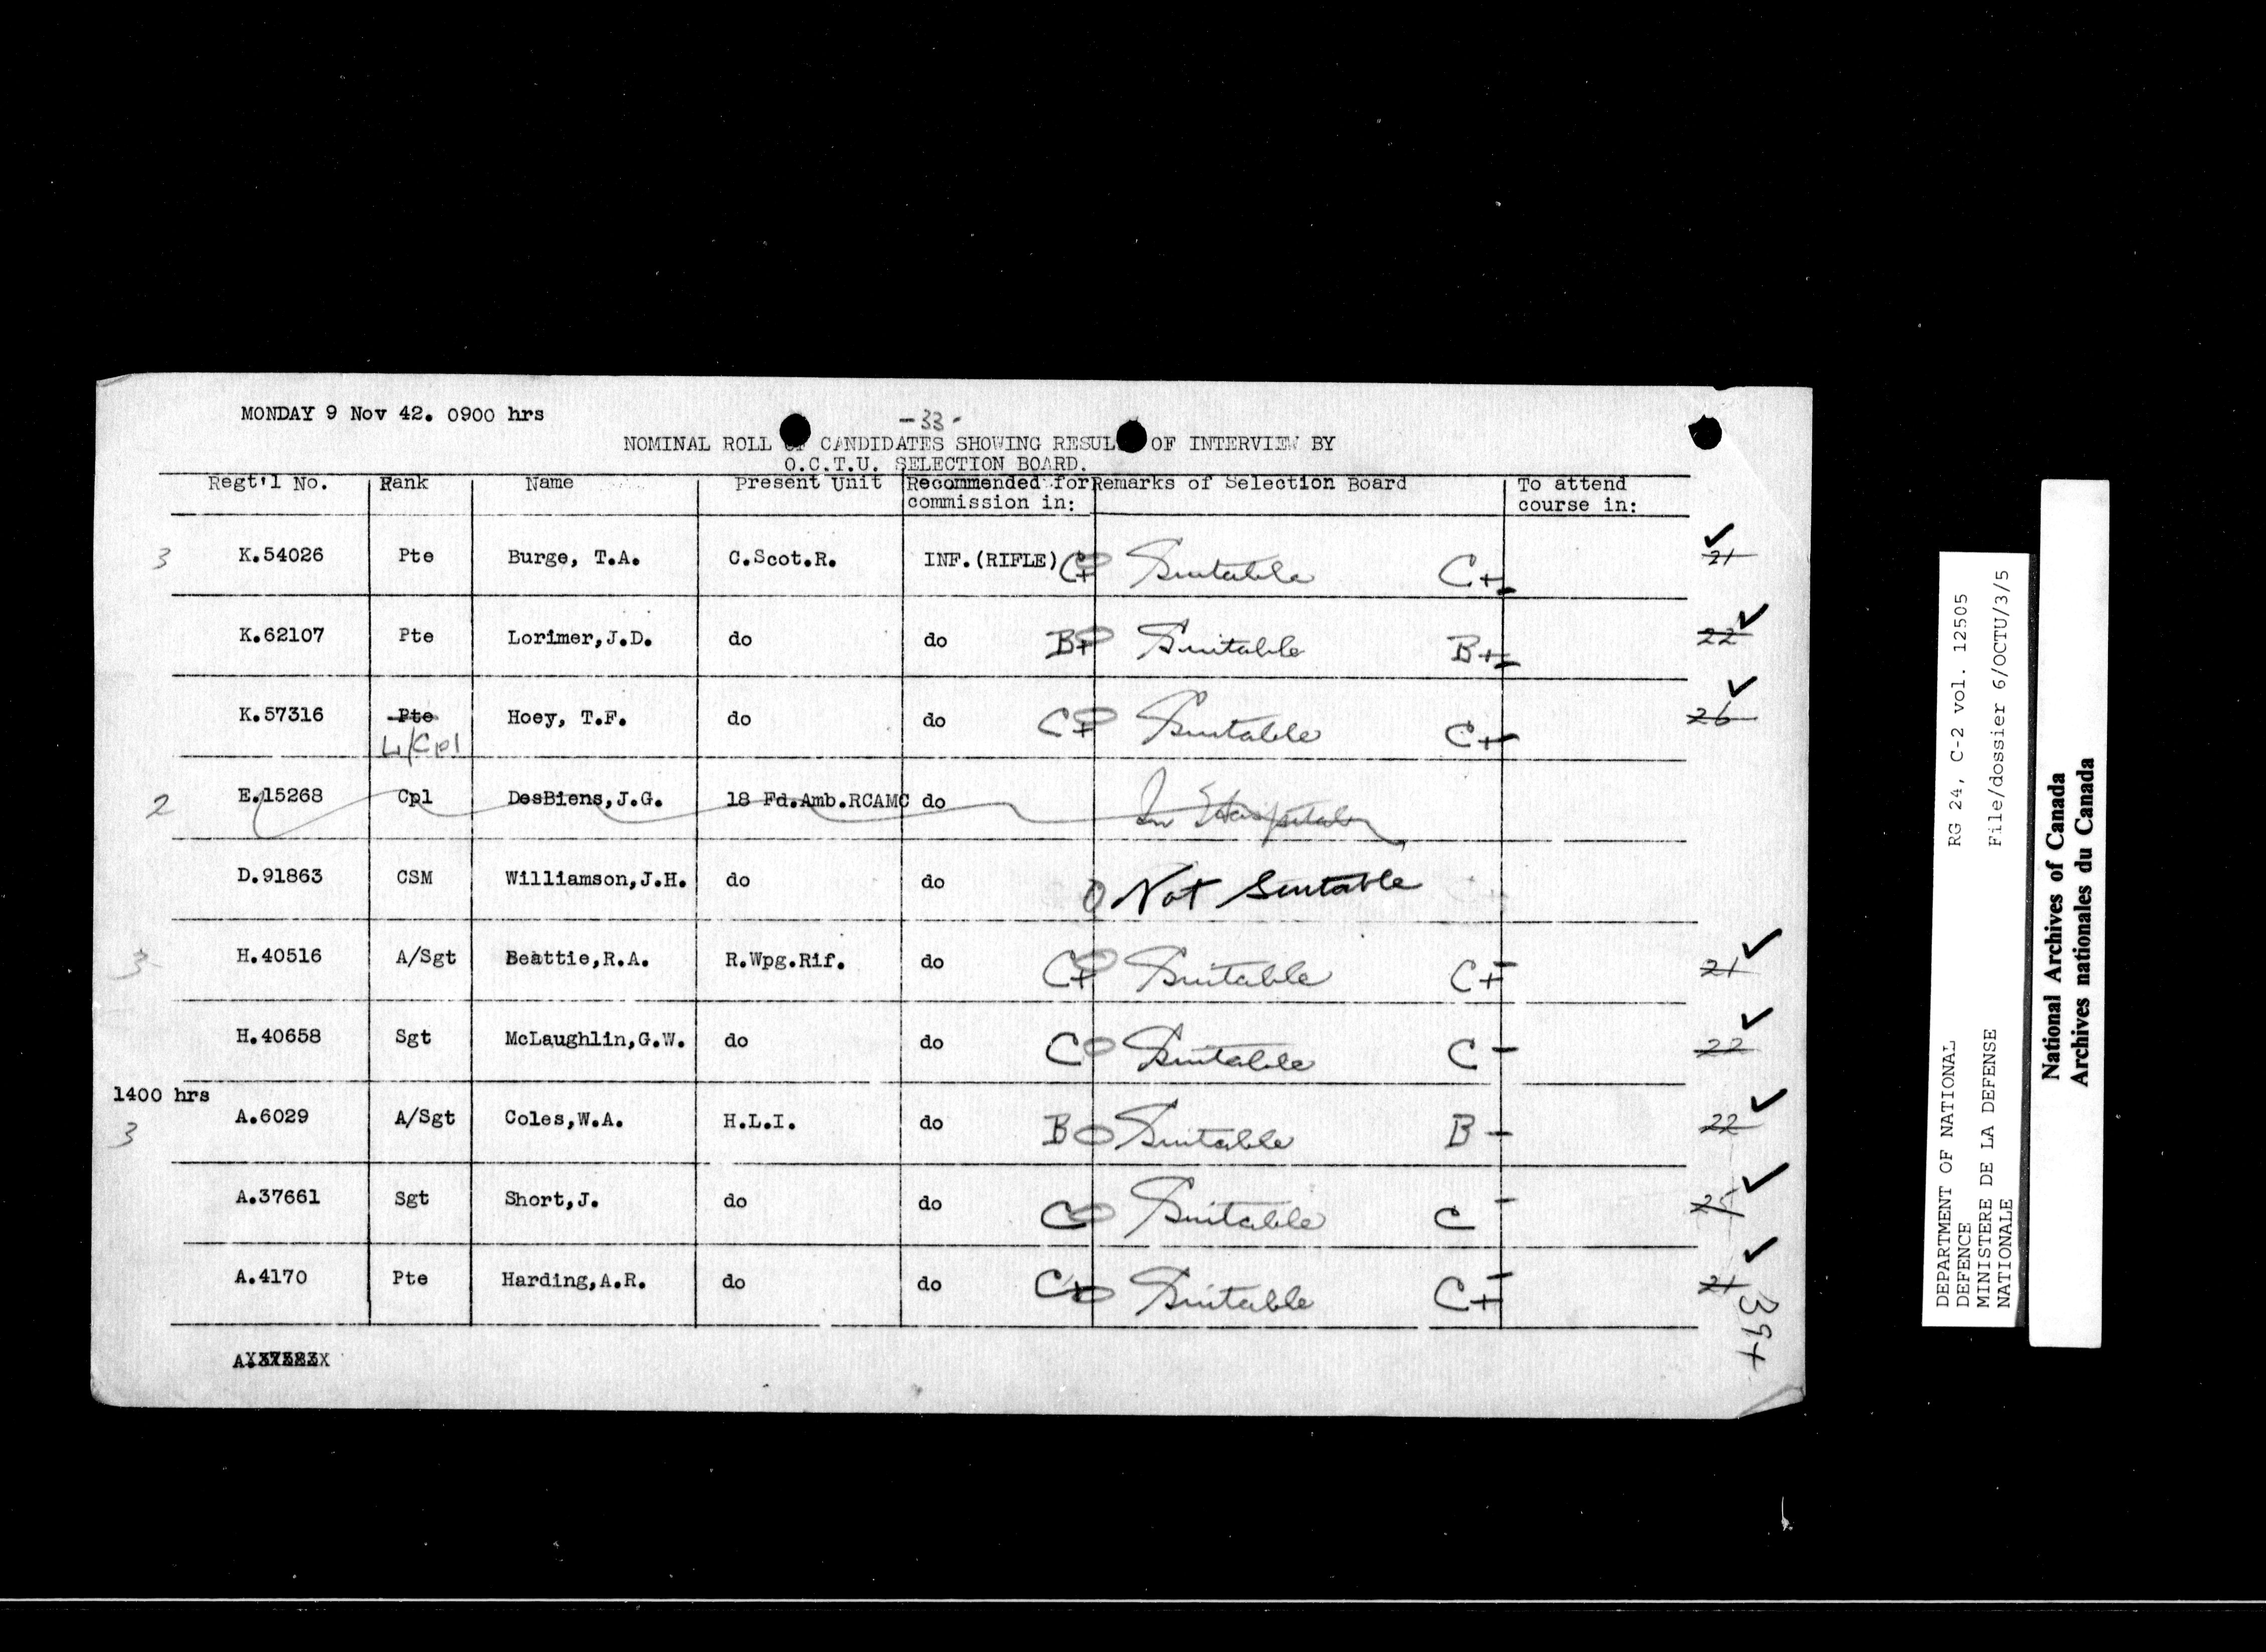 MONDAY 9 Nov 42. 0900 hrs
-33-
NOMINAL ROLL OF CANDIDATES SHOWING RESUL OF INTERVIEW BY
O.C.T.U. SELECTION BOARD.
Regt'l No. Rank Name Present Unit Recommended for commission in: Remarks of Selection Board To attend course in:
3 K.54026 Pte Burge, T.A. C.Scot.R. INF.(RIFLE) C+ Suitable C+ 21
K.62107 Pte Lorimer,J.D. do do B+ Suitable B+ 22
K.57316 Pte L/Cpl Hoey, T.F. do do C+ Suitable C+ 26
2 E.15268 Cpl DesBiens,J.G. 18 Fd.Amb.RCAMC do In Hospital
D.91863 CSM Williamson,J.H. do do 0 Not Suitable
3 H.40516 A/Sgt Beattie,R.A. R.Wpg.Rif. do C+ Suitable C+ 21
H.40658 Sgt McLaughlin,G.W. do do C Suitable C - 22
1400 hrs
3 A.6029 A/Sgt Coles,W.A. H.L.I. do B Suitable B - 22
A.37661 Sgt Short,J. do do C Suitable C - 25
A.4170 Pte Harding,A.R. do do C+ Suitable C+ 21
39+
DEPARTMENT OF NATIONAL DEFENCE
MINISTERE DE LA DEFENSE NATIONALE
RG 24, C-2 vol. 12505
File/dossier 6/OCTU/3/5
National Archives of Canada
Archives nationales du Canada